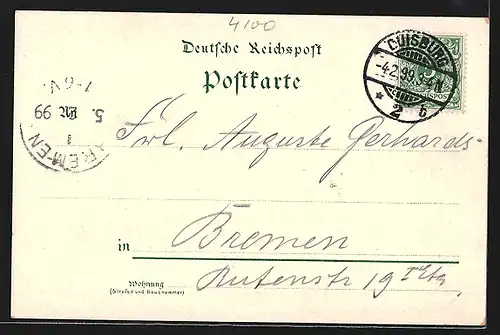 4100
Deutsche Reichspost
Postkarte
DUISBURG
-4.2.99.
* 2 b
BREMEN
1
5. 99
7-8V.
Frl. Auguste Gerhards
in Bremen
Rutenstr 19 I Etg
Wohnung
(Straße und Hausnummer)